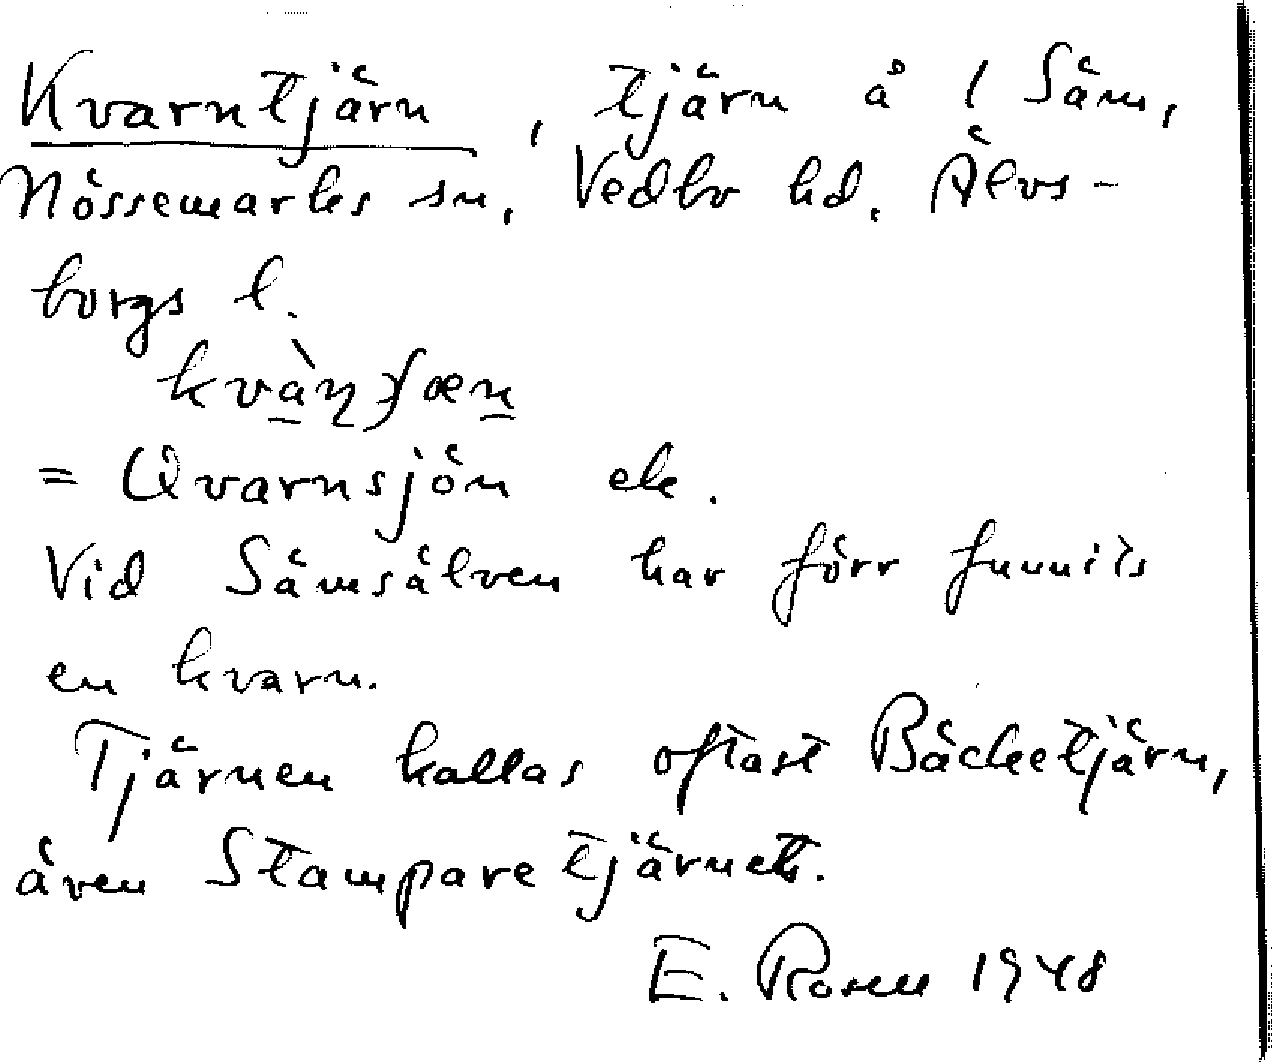 Kvarntjärn, tjärn å 1 Säm,
Nössemarks sn, Vedbo hd. Älvs-
borgs l.
= Qvarnsjön ek.
Vid Sämsälven har förr funnits
en kvarn.
Tjärnen kallas oftast Bäcketjärn,
även Stamparetjärnet.
E. Rosen 1948